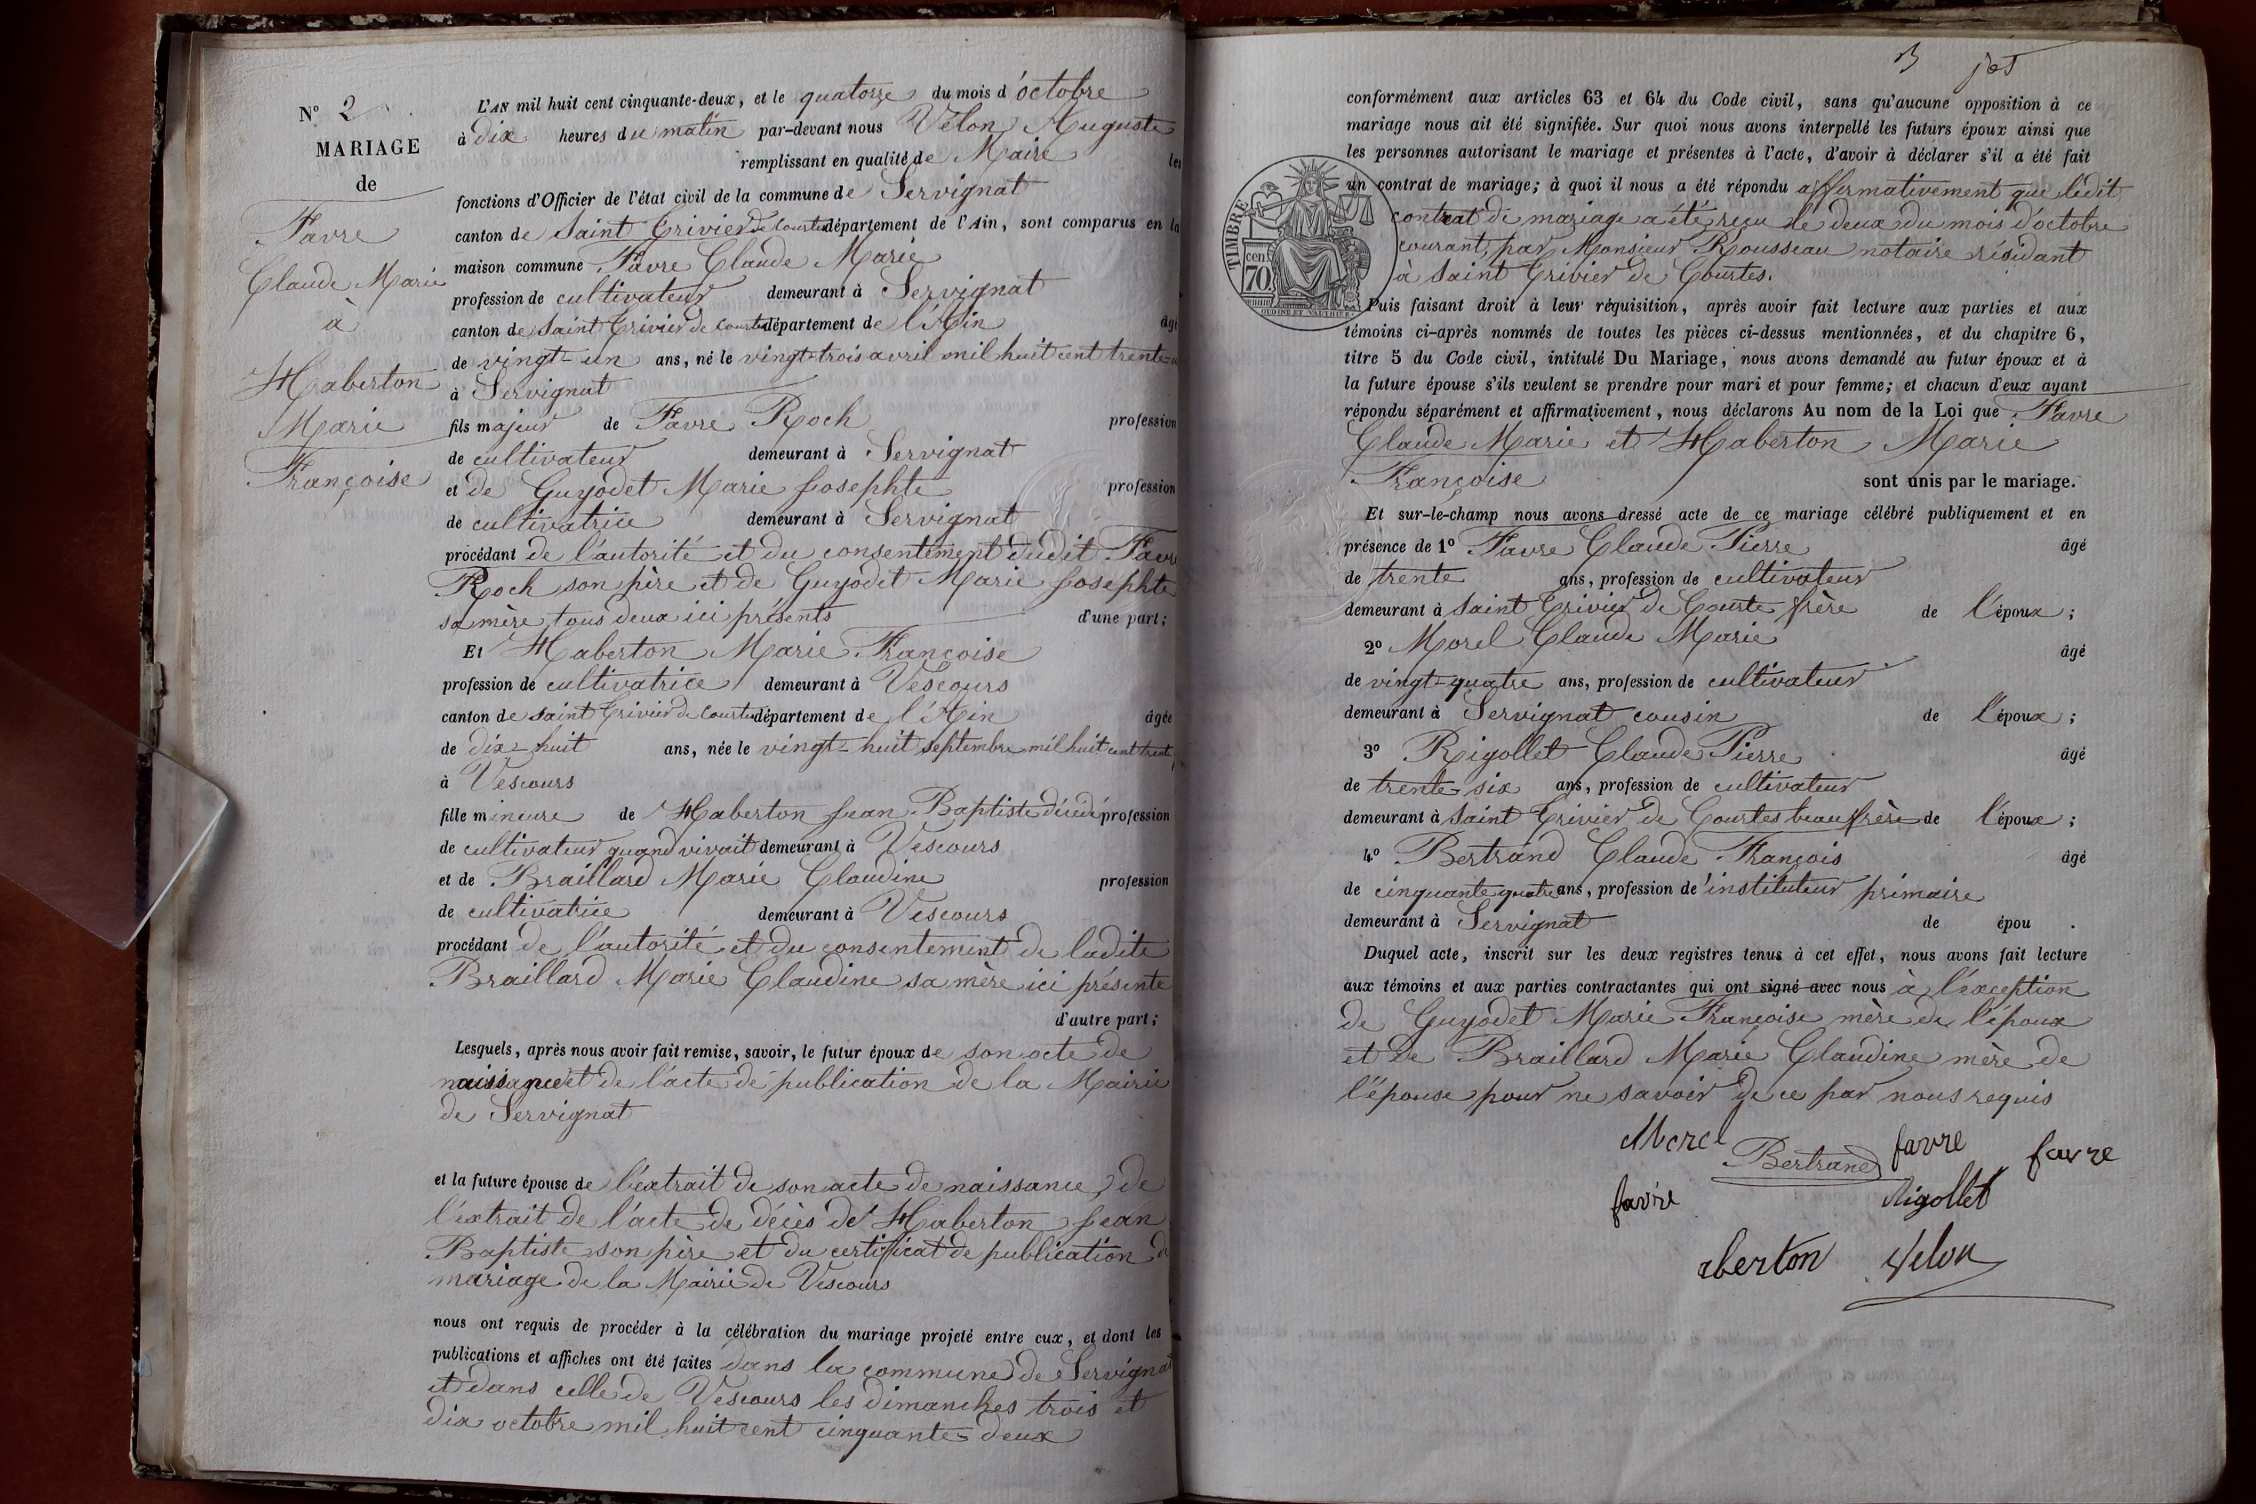 N° 2
MARIAGE
de
Favre
Claude Marie
à
Haberton
Marie
Françoise
L'AN mil huit cent cinquante-deux, et le quatorze du mois d'octobre
à dix heures du matin par-devant nous Vélon Auguste
remplissant en qualité de Maire les
fonctions d'Officier de l'état civil de la commune de Servignat
canton de Saint Trivier de Courtes département de l'Ain, sont comparus en la
maison commune Favre Claude Marie
profession de cultivateur demeurant à Servignat
canton de Saint Trivier de Courtes département de l'Ain âgé
de vingt-un ans, né le vingt-trois avril mil huit cent trente-
à Servignat
fils majeur de Favre Roch profession
de cultivateur demeurant à Servignat
et de Guyodet Marie Josephte profession
de cultivatrice demeurant à Servignat
procédant de l'autorité et du consentement dudit Favre
Roch son père et de Guyodet Marie Josephte
sa mère tous deux ici présents d'une part;
Et Haberton Marie Françoise
profession de cultivatrice demeurant à Vescours
canton de Saint Trivier de Courtes département de l'Ain âgée
de dix-huit ans, née le vingt-huit septembre mil huit cent trente
à Vescours
fille mineure de Haberton Jean Baptiste décédé profession
de cultivateur quand vivait demeurant à Vescours
et de Braillard Marie Claudine profession
de cultivatrice demeurant à Vescours
procédant de l'autorité et du consentement de ladite
Braillard Marie Claudine sa mère ici présente
d'autre part;
Lesquels, après nous avoir fait remise, savoir, le futur époux de son acte de
naissance et de l'acte de publication de la Mairie
de Servignat
et la future épouse de l'extrait de son acte de naissance, de
l'extrait de l'acte de décès de Haberton Jean
Baptiste son père et du certificat de publication de
mariage de la Mairie de Vescours
nous ont requis de procéder à la célébration du mariage projeté entre eux, et dont les
publications et affiches ont été faites dans la commune de Servignat
et dans celle de Vescours les dimanches trois et
dix octobre mil huit cent cinquante-deux
conformément aux articles 63 et 64 du Code civil, sans qu'aucune opposition à ce
mariage nous ait été signifiée. Sur quoi nous avons interpellé les futurs époux ainsi que
les personnes autorisant le mariage et présentes à l'acte, d'avoir à déclarer s'il a été fait
un contrat de mariage; à quoi il nous a été répondu affirmativement que ledit
contrat de mariage a été reçu le deux du mois d'octobre
courant, par Monsieur Rousseau notaire résidant
à Saint Trivier de Courtes.
TIMBRE
cen. 70
OUDINÉ ET VAUTHIER
Puis faisant droit à leur réquisition, après avoir fait lecture aux parties et aux
témoins ci-après nommés de toutes les pièces ci-dessus mentionnées, et du chapitre 6,
titre 5 du Code civil, intitulé Du Mariage, nous avons demandé au futur époux et à
la future épouse s'ils veulent se prendre pour mari et pour femme; et chacun d'eux ayant
répondu séparément et affirmativement, nous déclarons Au nom de la Loi que Favre
Claude Marie et Haberton Marie
Françoise
sont unis par le mariage.
Et sur-le-champ nous avons dressé acte de ce mariage célébré publiquement et en
présence de 1° Favre Claude Pierre âgé
de trente ans, profession de cultivateur
demeurant à Saint Trivier de Courte frère de l'époux;
2° Morel Claude Marie âgé
de vingt-quatre ans, profession de cultivateur
demeurant à Servignat cousin de l'époux;
3° Rigollet Claude Pierre âgé
de trente-six ans, profession de cultivateur
demeurant à Saint Trivier de Courtes beau frère de l'époux;
4° Bertrand Claude François âgé
de cinquante quatre ans, profession de l'instituteur primaire
demeurant à Servignat de épou .
Duquel acte, inscrit sur les deux registres tenus à cet effet, nous avons fait lecture
aux témoins et aux parties contractantes qui ont signé avec nous à l'exception
de Guyodet Marie Françoise mère de l'époux
et de Braillard Marie Claudine mère de
l'épouse pour ne savoir de ce par nous requis
Morel Bertrand favre favre
favre Rigollet
aberton Velon